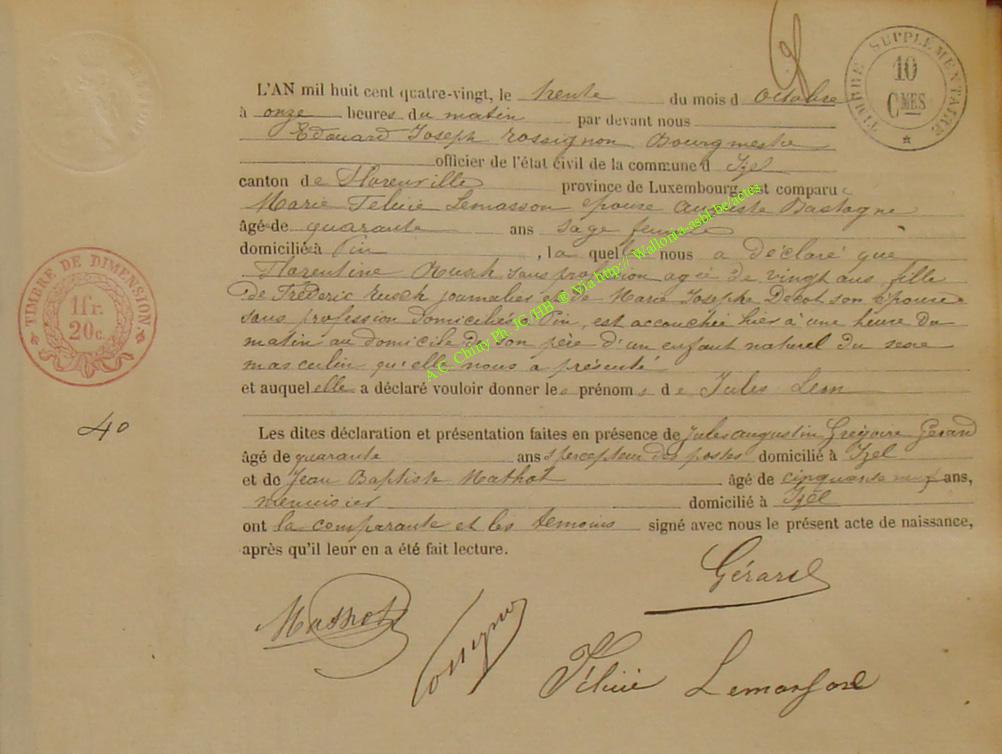 TIMBRE SUPPLÉMENTAIRE
10
CMES
L'AN mil huit cent quatre-vingt, le trente du mois d octobre
à onze heures du matin par devant nous
Edouard Joseph Rossignon Bourgmestre
officier de l'état civil de la commune d Izel
canton de Florenville province de Luxembourg, est comparue
Marie Felicie Lemasson epouse Auguste Bastogne
âgé de quarante ans sage femme
domiciliée à Pin, la quelle nous a déclaré que
Florentine sans profession agée de vingt ans fille
de Fréderic journalier et de Marie Josephe son épouse
sans profession domiciliés à Pin, est accouchée hier à une heure du
matin au domicile de son père d'un enfant naturel du sexe
masculin qu'elle nous a présenté
et auquel elle a déclaré vouloir donner les prénoms de Jules Leon
TIMBRE DE DIMENSION.
1fr.
20c.
40
Les dites déclaration et présentation faites en présence de Jules Augustin Grégoire Gerard
âgé de quarante ans percepteur des postes domicilié à Izel
et de Jean Baptiste Mathot âgé de cinquante neuf ans,
menuisier domicilié à Izel
ont la comparante et les temoins signé avec nous le présent acte de naissance,
après qu'il leur en a été fait lecture.
Gérard
Mathot
Félicie Lemasson
A.C. Chiny Ph. JC/HH ® Via http://Wallonia-asbl.be/actes